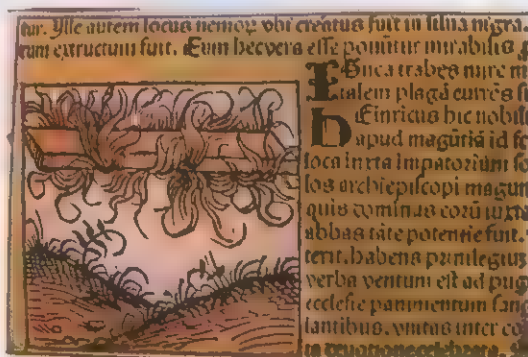 tur. Ylle autem locus nemoꝝ vbi creatus fuit in silua nigra.
rum extructum fuit. Cum hec vera esse ponitur mirabilis
Gnea trabes mire m
talem plagã currẽs
Einricus hic nobil
apud magũtiã id
loca iuxta
los archiepiscopi magun
quis dominus corũ iuxta
abbas tãte potentie fuit.
terit. habens priuilegium
verba ventum est ad pug
ecclesie pauimentum san
tantibus. vnitas inter
in deuotione celebrata.